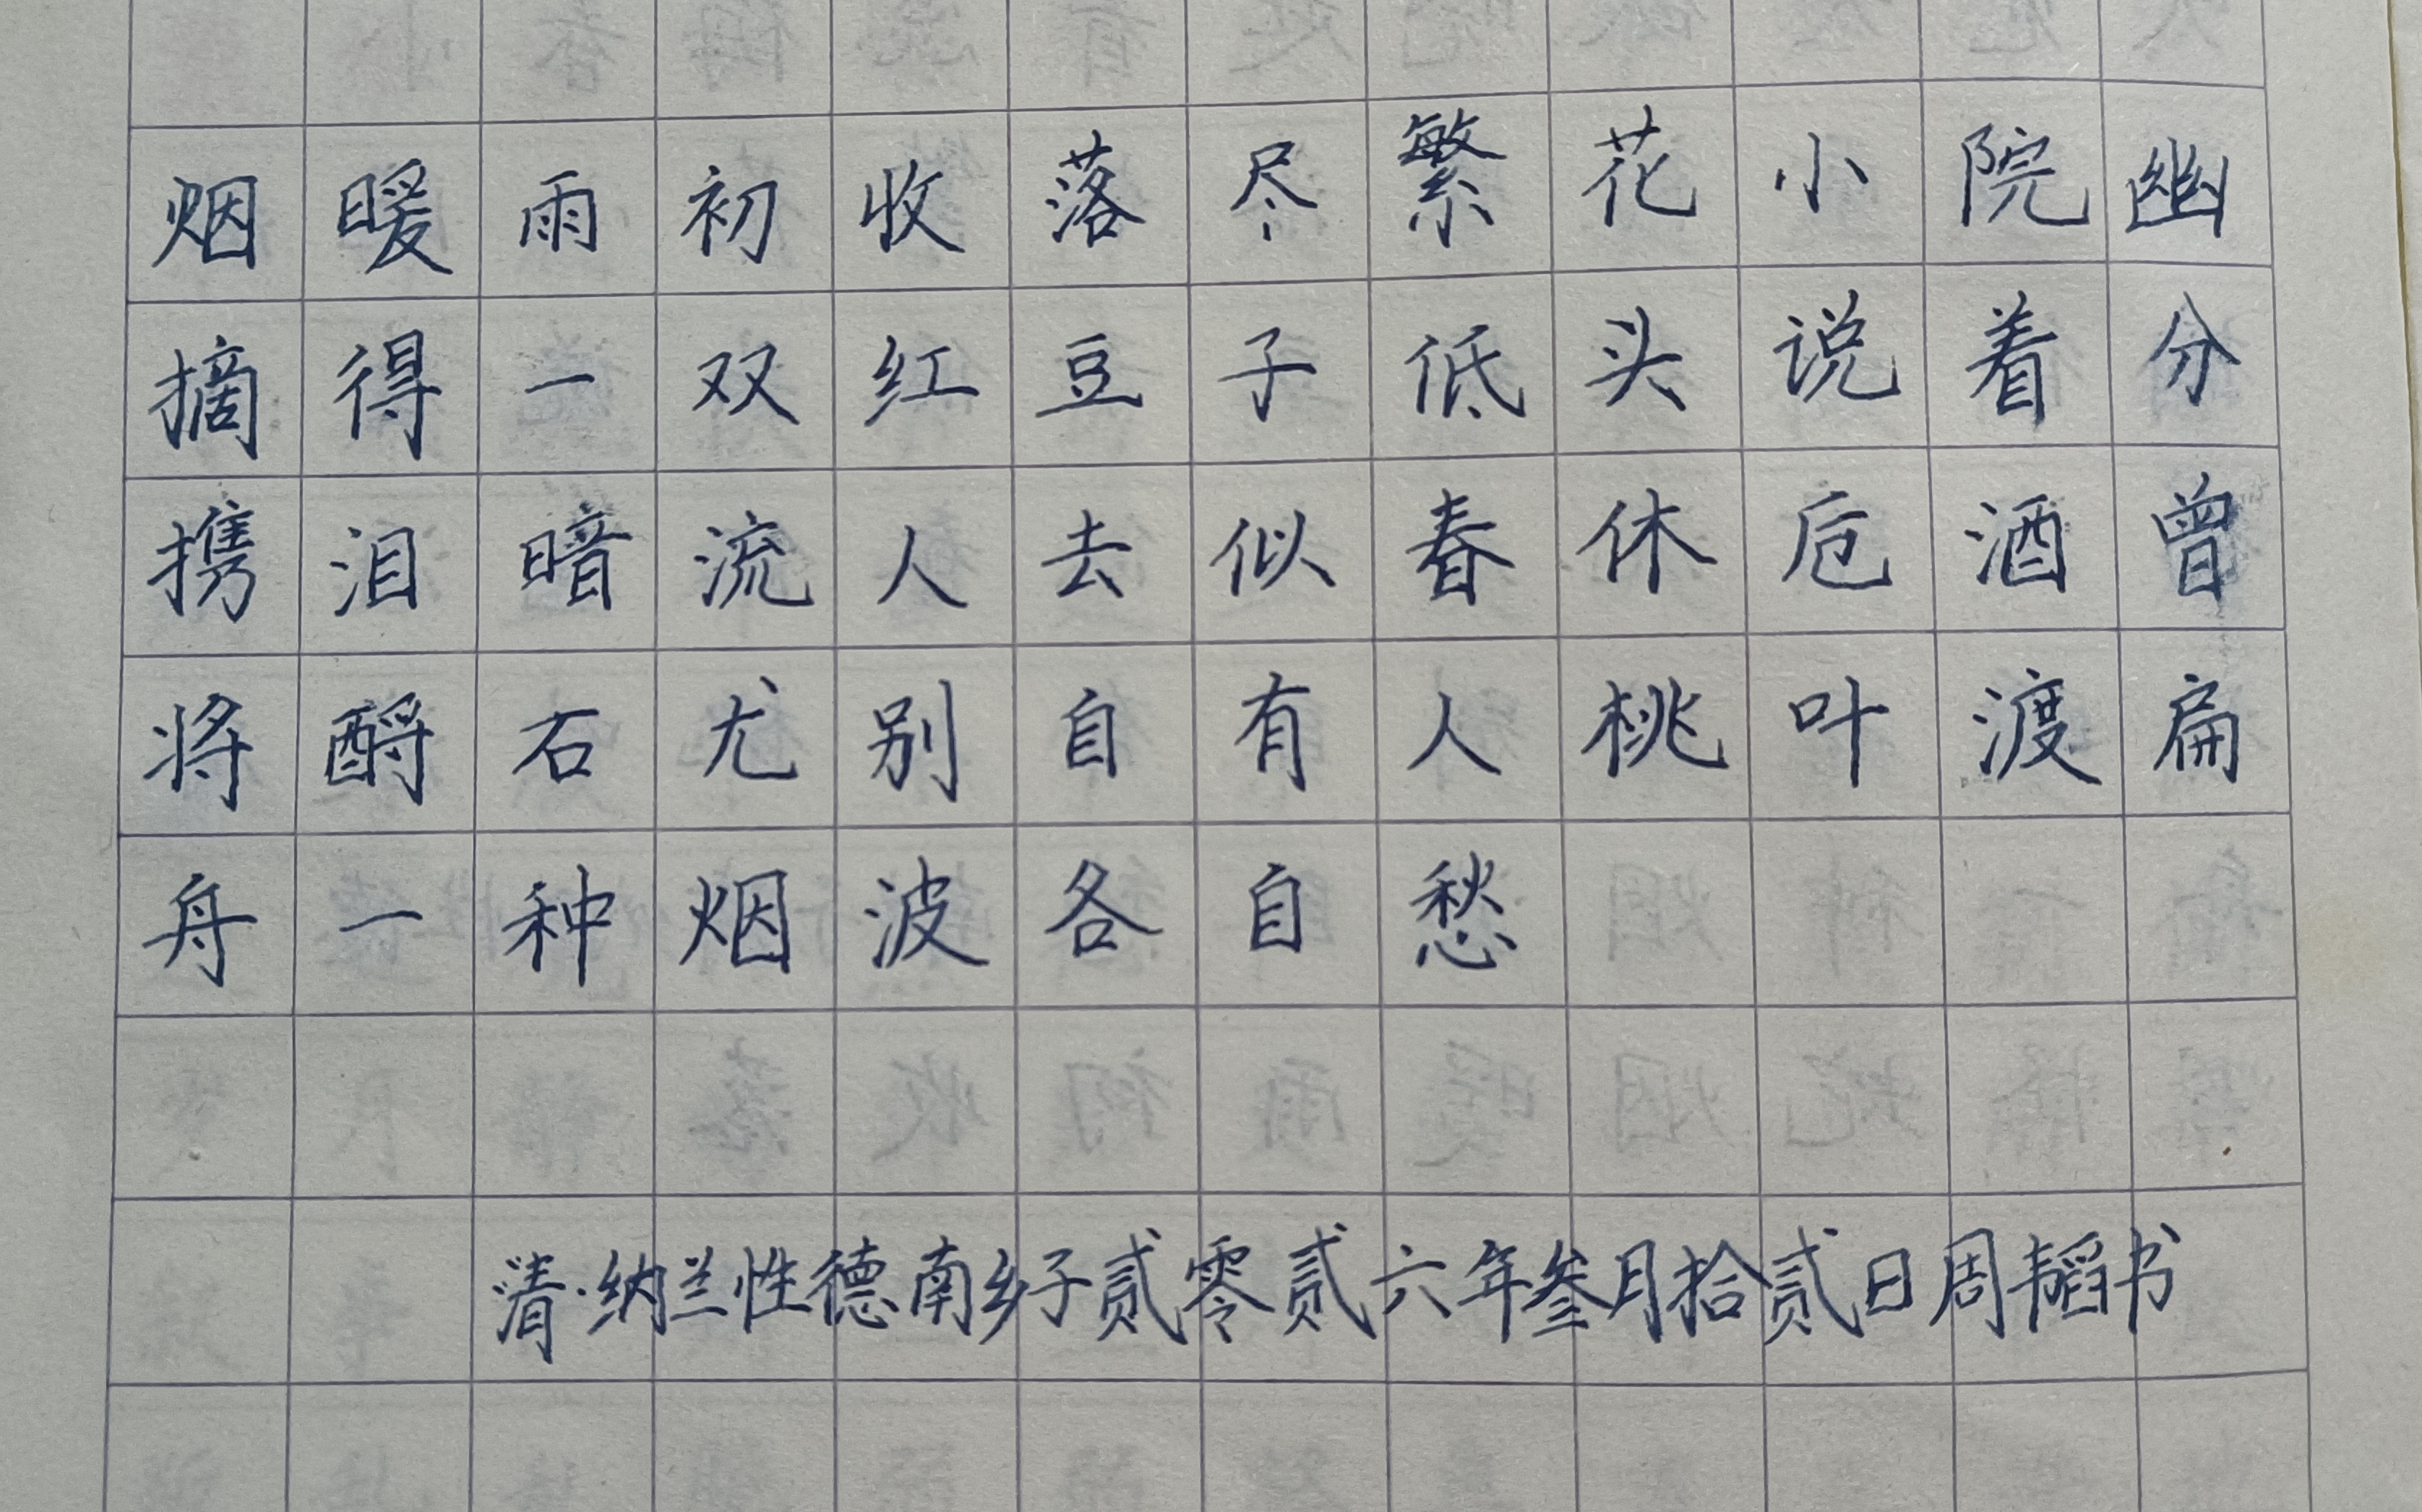 烟暖雨初收落尽繁花小院幽
摘得一双红豆子低头说着分
携泪暗流人去似春休卮酒曾
将酹石尤别自有人桃叶渡扁
舟一种烟波各自愁
清·纳兰性德南乡子贰零贰六年叁月拾贰日周韬书